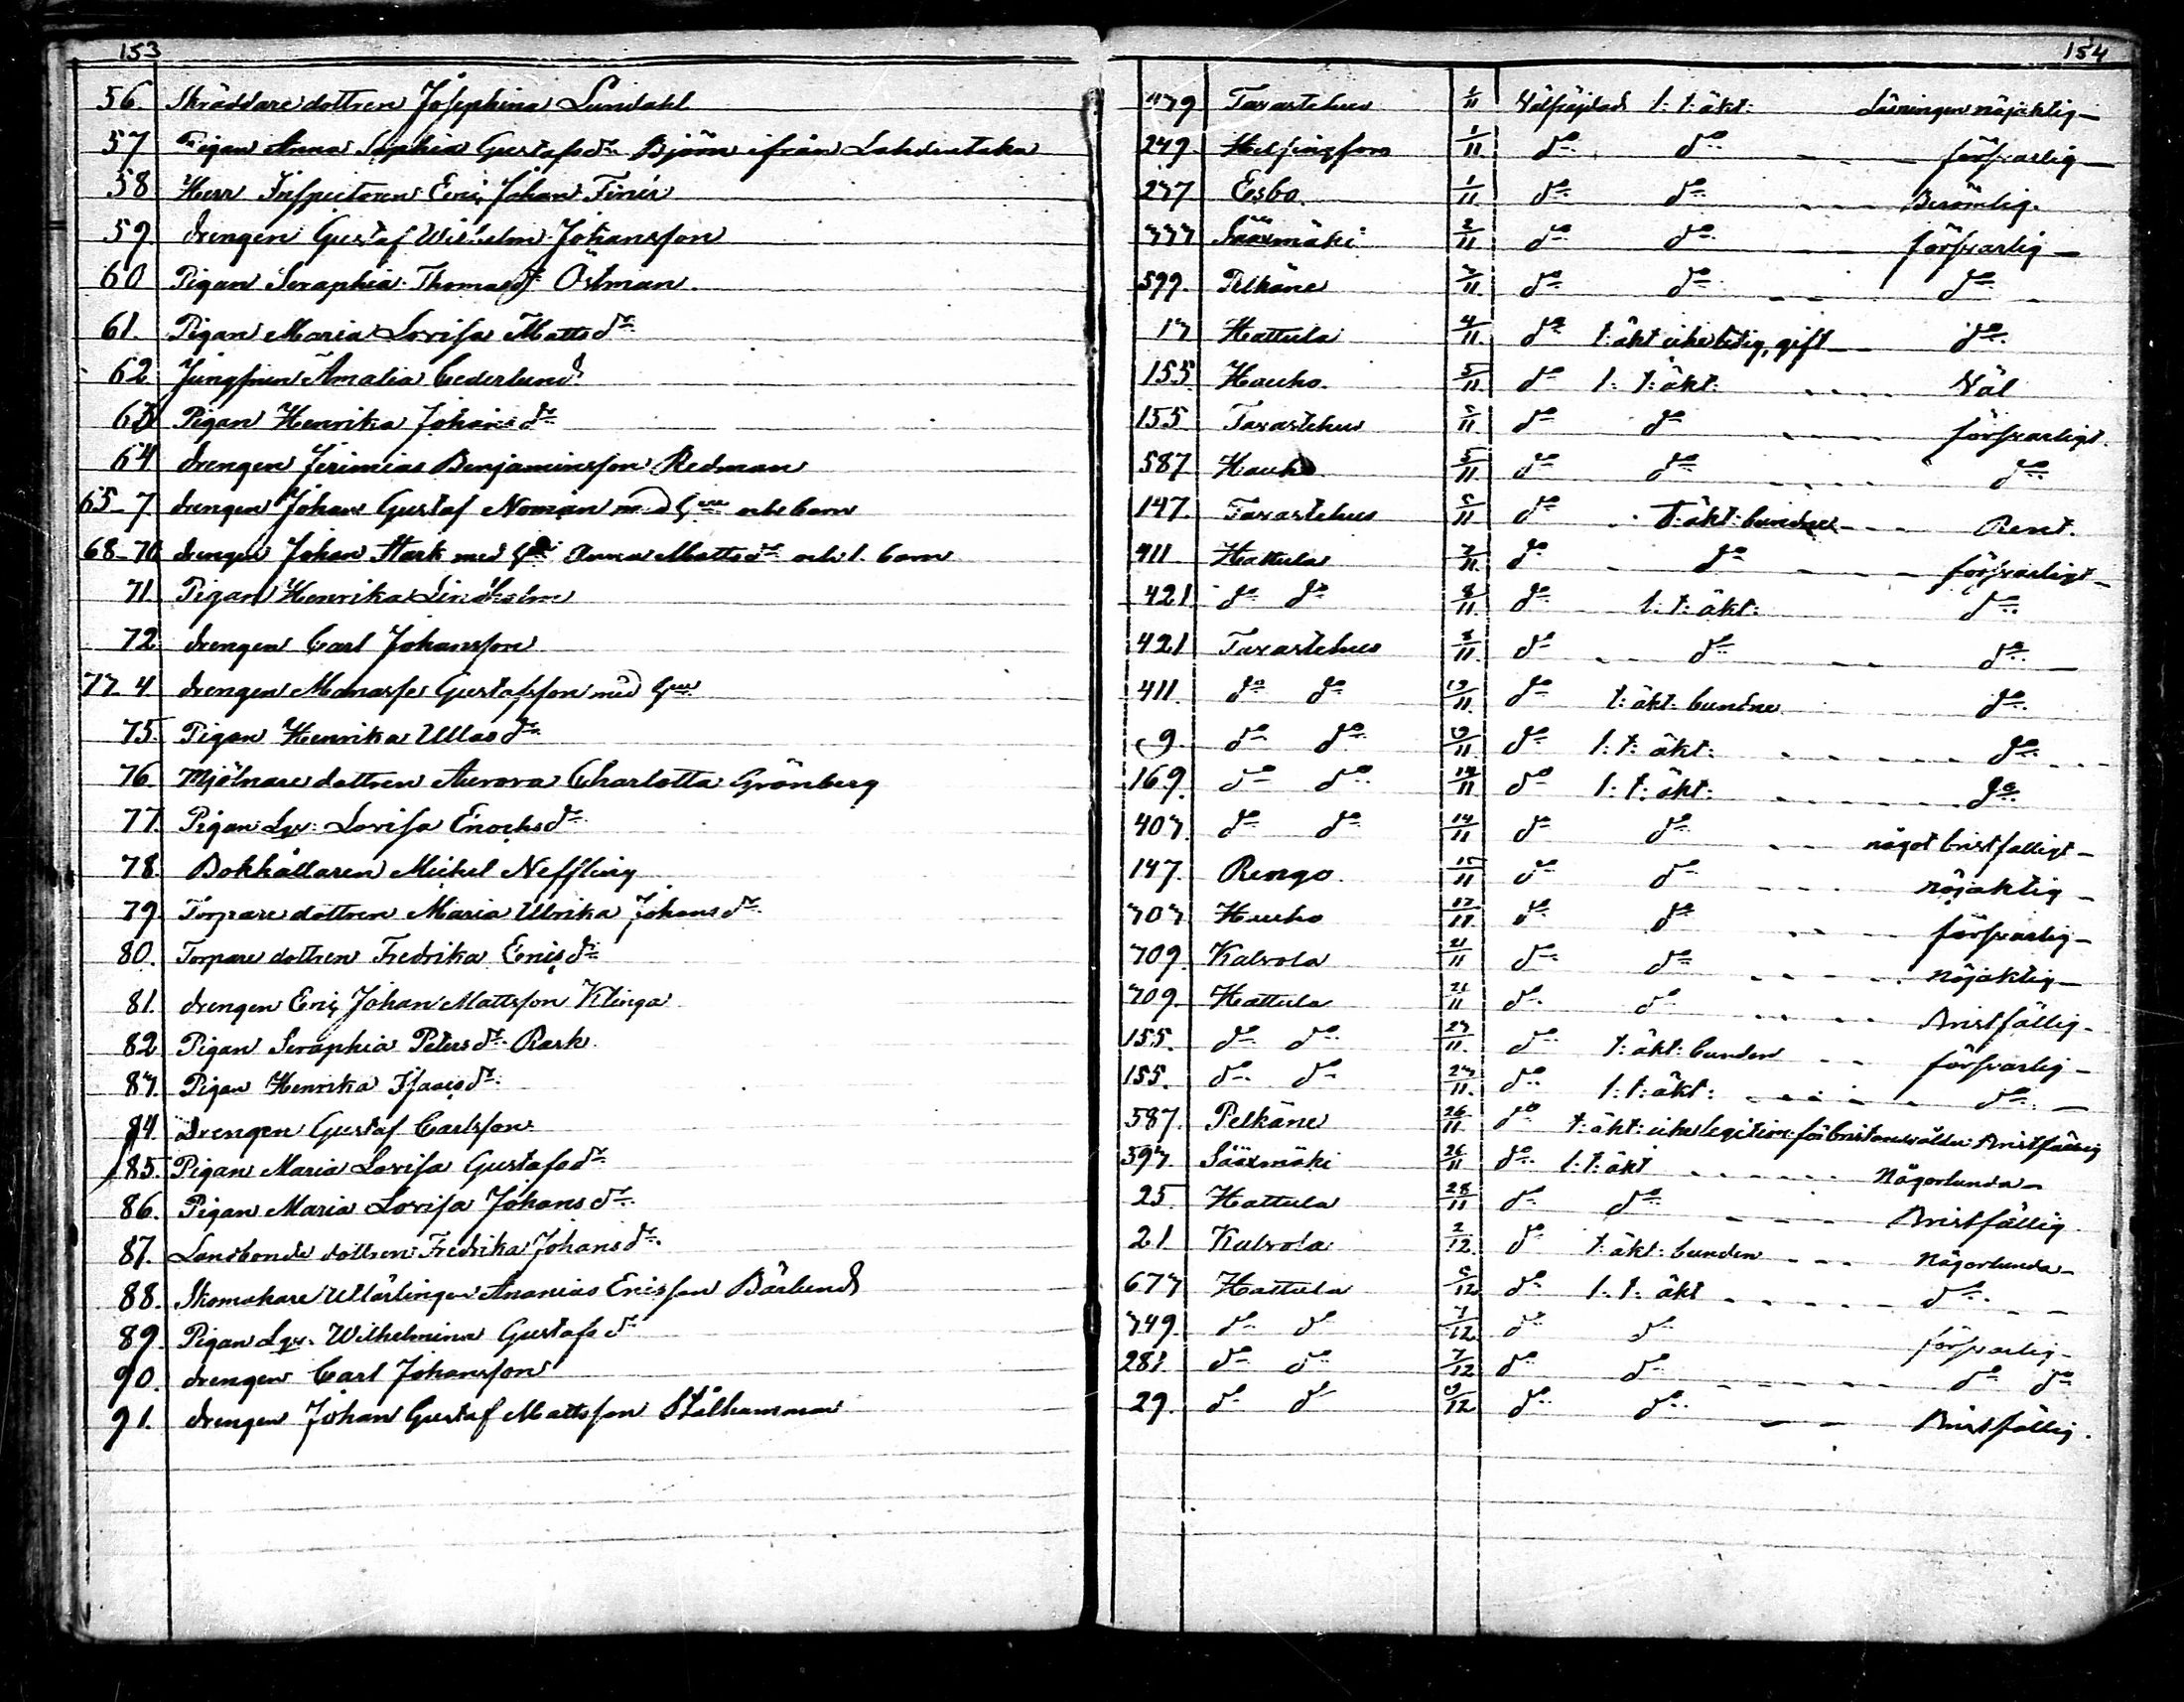 153
56. Skräddare dottren Josephina Lundahl
57 Pigan Anna Sophia Gustafsdr Björn ifrån Lahdentaka
58 Herr Inspectoren Eric Johan Finér
59. drengen Gustaf Wilhelm Johansson
60 Pigan Seraphia Thomasdr Östman.
61. Pigan Maria Lovisa Mattsdr
62 Jungfrun Amalia Cederlund
63 Pigan Henrika Johansdr
64 drengen Jerimias Benjaminsson Redman
65-7 drengen Johan Gustaf Noman med hu och barn
68-70 drengen Johan Stark med hu Anna Mattsdr och 1. barn
71. Pigan Henrika Lindholm
72 drengen Carl Johansson
73-4 drengen Manasse Gustafsson med hu
75. Pigan Henrika Ullasdr
76. Mjölnare dottren Aurora Charlotta Grönberg
77. Pigan Lgr: Lovisa Enochsdr
78. Bokhållaren Mickel Neffling
79. Torpare dottren Maria Ulrika Johansdr
80. Torpare dottren Fredrika Ericsdr
81. drengen Eric Johan Mattsson Klinga
82 Pigan Seraphia Petersdr Rask.
83. Pigan Henrika Isaacsdr
84. Drengen Gustaf Carlsson
85. Pigan Maria Lovisa Gustafsdr
86. Pigan Maria Lovisa Johansdr
87. Landbonde dottren Fredrika Johansdr
88. Skomakare Utlärlingen Ananias Ericsson Bärlund
89. Pigan Lgr. Wilhelmina Gustafsdr
90. drengen Carl Johansson
91. drengen Johan Gustaf Mattsson Stålhammar
154
439 Tavastehus 1/11 Välfrejdad l: t: äkt: Läsningen nöjaktig
249. Helsingfors 1/11. do do försvarlig
237 Esbo. 1/11. do do Berömlig.
333 Sääxmäki 2/11 do do försvarlig
599. Pelkäne 3/11. do do do
13 Hattula 4/11. do t: äkt icke ledig, gift do
155. Hauho. 5/11. do l: t: äkt: Väl
155 Tavastehus 5/11 do do försvarligt.
587 Hauho 5/11. do do do
147. Tavastehus 5/11 do t: äkt: bundne Rent.
411 Hattula 7/11. do do försvarligt
421 do do 8/11. do l: t: äkt: do
421 Tavastehus 8/11. do do do
411. do do 13/11. do t: äkt: bundne do
9. do do 13/11 do l: t: äkt: do
169. do do 14/11 do l: t: äkt: do
403. do do 14/11 do do något bristfälligt
147. Rengo. 15/11 do do nöjaktig
303 Hauho 17/11. do do försvarlig
309. Kalvola 21/11 do do nöjaktig
309. Hattula 21/11 do do Bristfällig
155. do do 23/11. do t: äkt: bunden försvarlig
155. do do 23/11. do l: t: äkt: do
587. Pelkäne 26/11. do t: äkt: icke legitim: för Bristfällig
593. Sääxmäki 26/11 do l: t: äkt Någorlunda
25 Hattula 28/11 do do Bristfällig
21. Kalvola 2/12. do t: äkt: bunden Någorlunda
673 Hattula 5/12 do l: t: äkt do
349. do do 7/12. do do försvarlig
281. do do 7/12 do do do do
29. do do 9/12 do do Bristfällig.